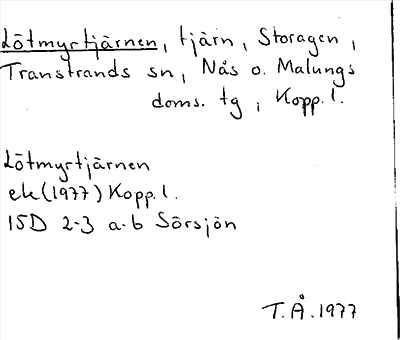 Lötmyrtjärnen, tjärn, Storagen,
Transtrands sn, Nås o. Malungs
doms. tg, Kopp. l.
Lötmyrtjärnen
ek (1977) Kopp. l.
15D 2-3 a-b Sörsjön
T.Å. 1977